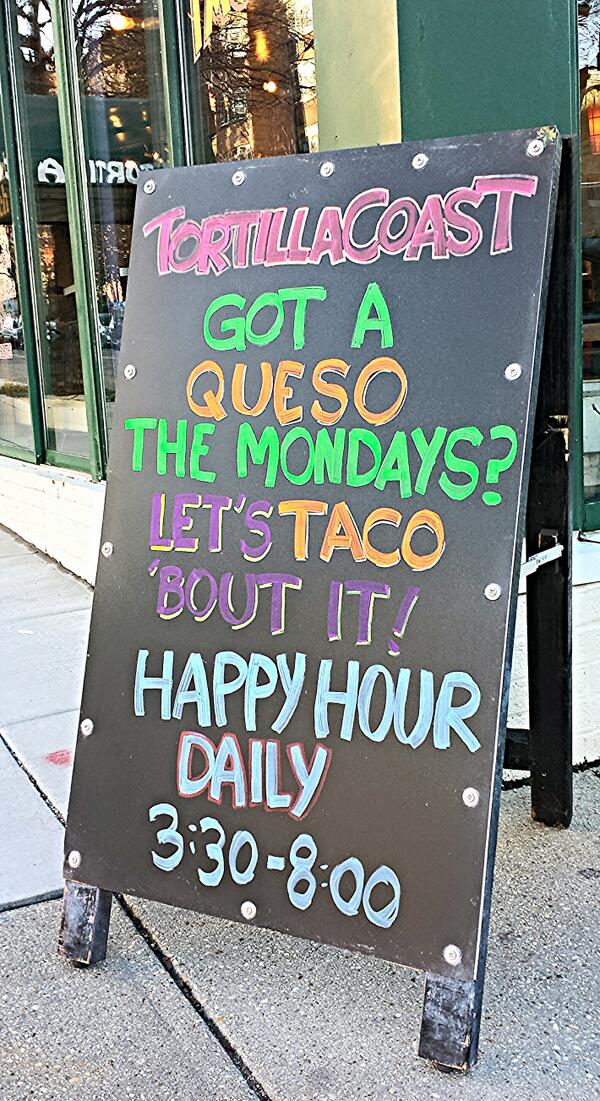 TORTILLA COAST
GOT A
QUESO
THE MONDAYS?
LET'S TACO
'BOUT IT!
HAPPY HOUR
DAILY
3:30-8:00